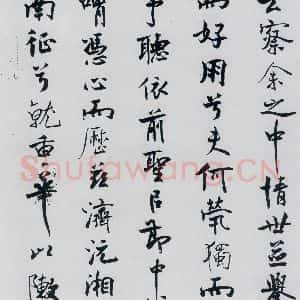 云察余之中情世並舉
而好朋兮夫何煢獨而
予聽依前聖以節中
喟憑心而歷茲濟沅湘
南征兮就重華以敶
Shufawang.CN